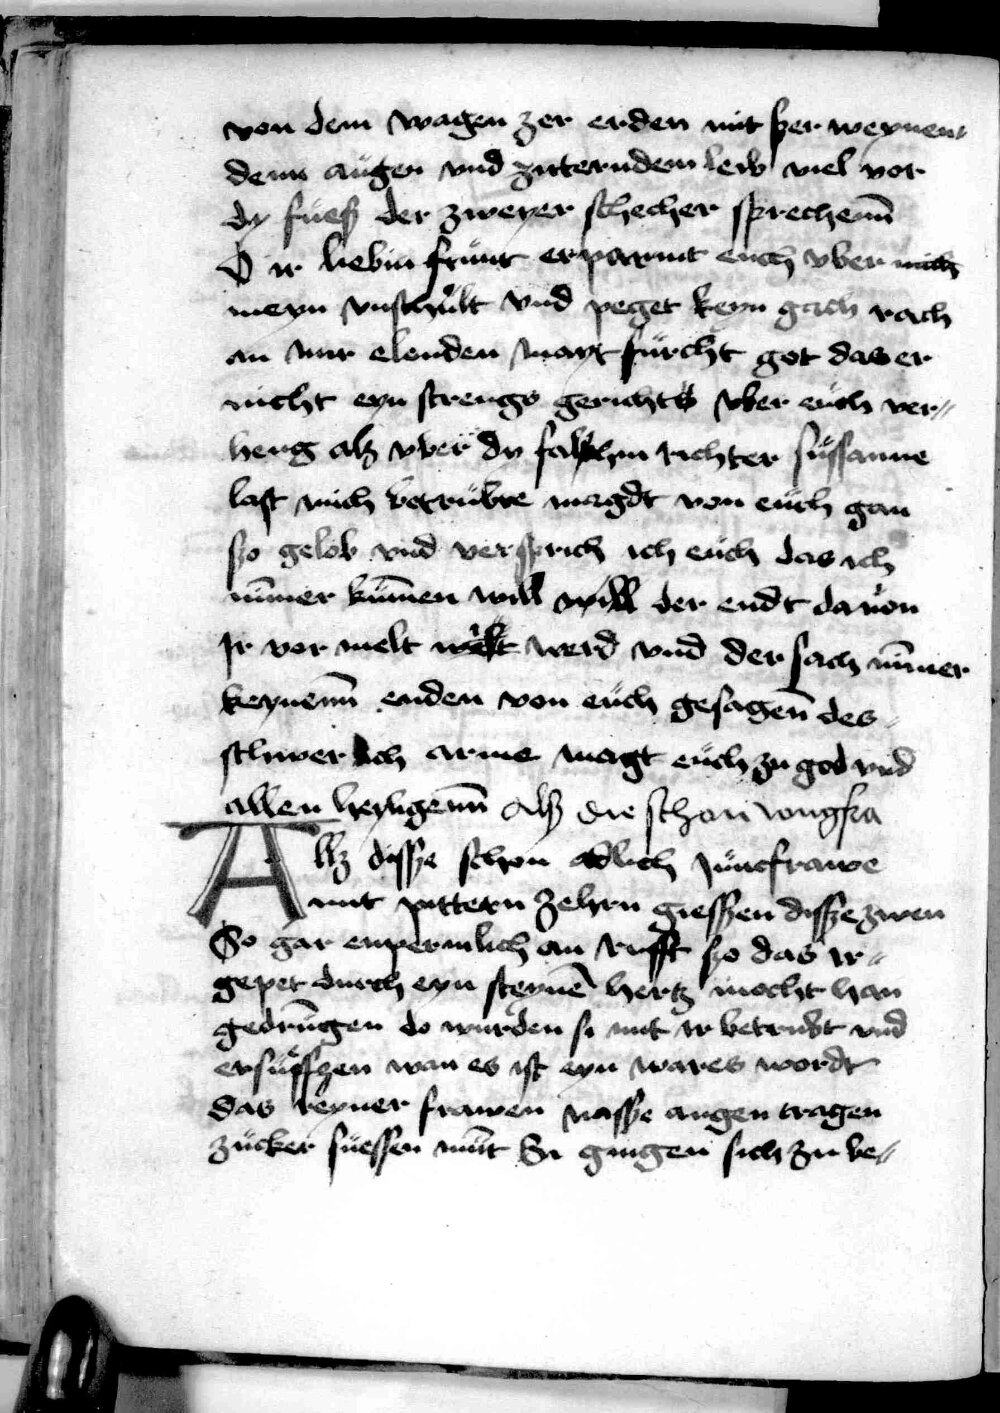 von dem wagen zer erden mit ser weynen„
denn augen vnd zitterndem leib viel vor
dy fueß der zweyer schecher sprechenn̄
O ir liebin frunt erparmt euch vber mich
meyn vnschult vnd peget keyn gach rach
an mir elenden mayt furcht got das er
nicht eyn strengs gerichts vber euch ver„
heng alß vber dy falschin richter sussanne
last mich betrubte magdt von euch gan
so gelob vnd versprich ich euch das ich
nim̄er kum̄en will will der endt da von
Ir vor melt werd vnd der sach nim̄er
keynenn̄ enden von euch gesagen̄ des„
schwer ich arme magt euch zu got vnd
allen heyligenn̄ Alß die schon iungfra
Alß disse schon adlich Juncfrawe
mit pittern zehrn giessen disse zwen
So gar enpermlich an rufft so das ir„
gepet durch eyn steynē hertz mocht han
gedrungen do wurden si mit ir betrubt vnd
ersuffzen wan es ist eyn wares wordt
das reyner frawen nasse augen tragen
zucker suessen mut Si gingen sich zu be„